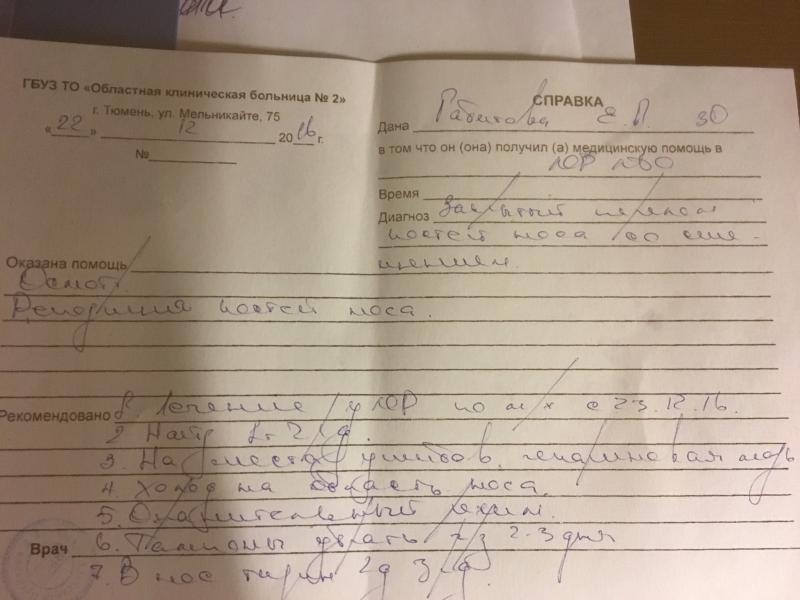 ГБУЗ ТО «Областная клиническая больница № 2»
г. Тюмень, ул. Мельникайте, 75
«22» 12 2016 г.
№
СПРАВКА
Дана Е. 30
в том что он (она) получил (а) медицинскую помощь в
ЛОР
Время
Диагноз Закрытый перелом
костей носа со сме-
щением.
Оказана помощь
Осмотр.
Репозиция костей носа.
Рекомендовано 1. Лечение у ЛОР по м/ж с 23.12.16.
2.
3. На места ушибов гепариновая мазь
4. Холод на область носа.
5. Охранительный режим.
Врач 6. Тампоны убрать ч/з 2-3 дня
7. В нос 3